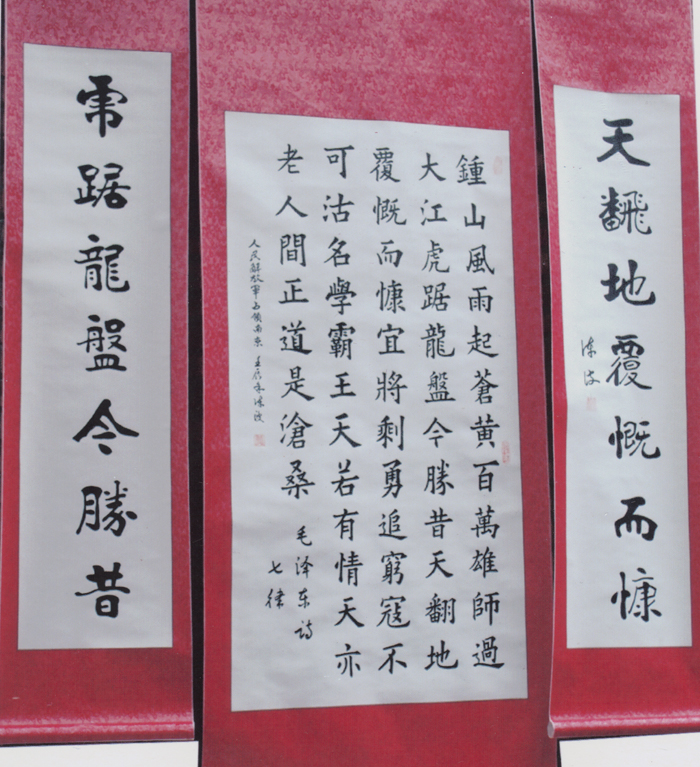 天飜地覆慨而慷
鍾山風雨起蒼黃百萬雄師過
大江虎踞龍盤今勝昔天翻地
覆慨而慷宜將剩勇追窮寇不
可沽名學霸王天若有情天亦
老人間正道是滄桑
毛泽东诗
七律
人民解放軍占領南京
虎踞龍盤今勝昔